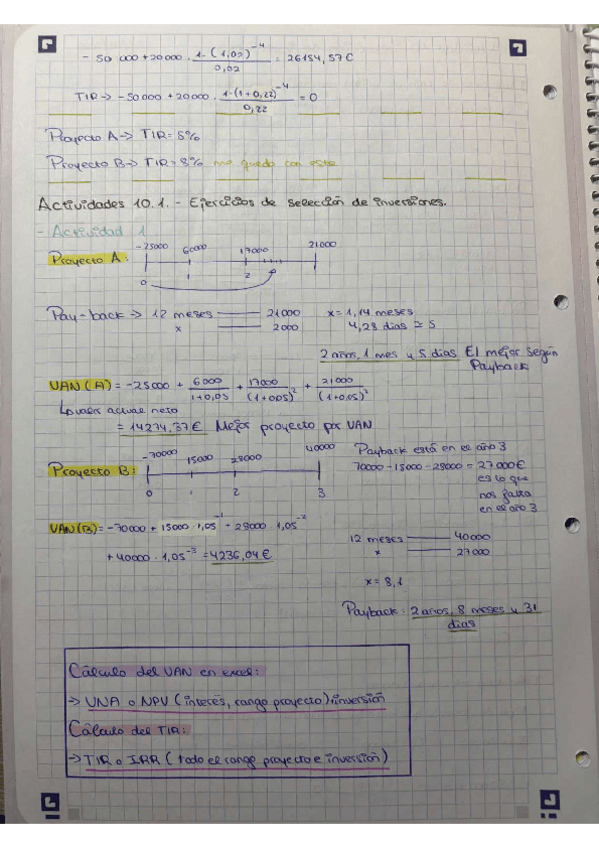 - 50 000 + 20000 · 1-(1,02)^-4 / 0,02 = 26154,57€
TIR → -50000 + 20000 · 1-(1+0,22)^-4 / 0,22 = 0
Proyecto A → TIR = 5%
Proyecto B → TIR = 8% me quedo con este
Actividades 10.1. - Ejercicios de selección de inversiones.
- Actividad 1
Proyecto A:
-25000 6000 17000 21000
0 1 2
Pay-back → 12 meses —— 21000
x —— 2000
x = 1,14 meses
4,28 dias ≃ 5
2 años, 1 mes y 5 dias El mejor según
Payback
VAN (A) = -25000 + 6000 / 1+0,05 + 17000 / (1+0,05)^2 + 21000 / (1+0,05)^2
↳ valor actual neto
= 14274,37€ Mejor proyecto por VAN
Proyecto B:
-70000 15000 28000 40000
0 1 2 3
Payback está en el año 3
70000 - 15000 - 28000 = 27000€
es lo que
nos falta
en el año 3
VAN (B) = -70000 + 15000 · 1,05^-1 + 28000 · 1,05^-2
+ 40000 · 1,05^-3 = 4236,04€
12 meses —— 40000
x —— 27000
x = 8,1
Payback: 2 años, 8 meses y 31
dias
Cálculo del VAN en excel:
→ VNA o NPV (interés, rango proyecto) inversión
Cálculo del TIR:
→ TIR o IRR (todo el rango proyecto e inversión)